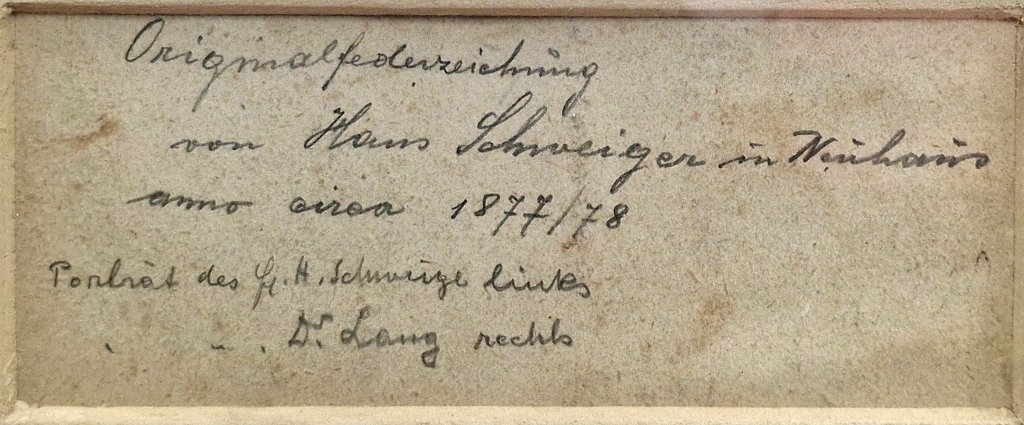 Originalfederzeichnung
von Hans Schweiger in Neuhaus
anno circa 1877/78
Porträt des H. Schweiger links
" " Dr. Lang rechts